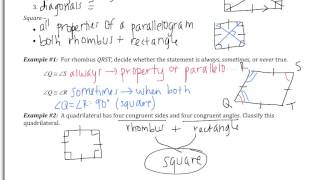 diagonals ≅
Square -
• all properties of a parallelogram
• both rhombus + rectangle
Example #1: For rhombus QRST, decide whether the statement is always, sometimes, or never true.
∠Q ≅ ∠S always → property of parallelo...
∠Q ≅ ∠R Sometimes → when both
∠Q = ∠R = 90° (square)
Q R
T S
Example #2: A quadrilateral has four congruent sides and four congruent angles. Classify this
quadrilateral.
rhombus + rectangle
square